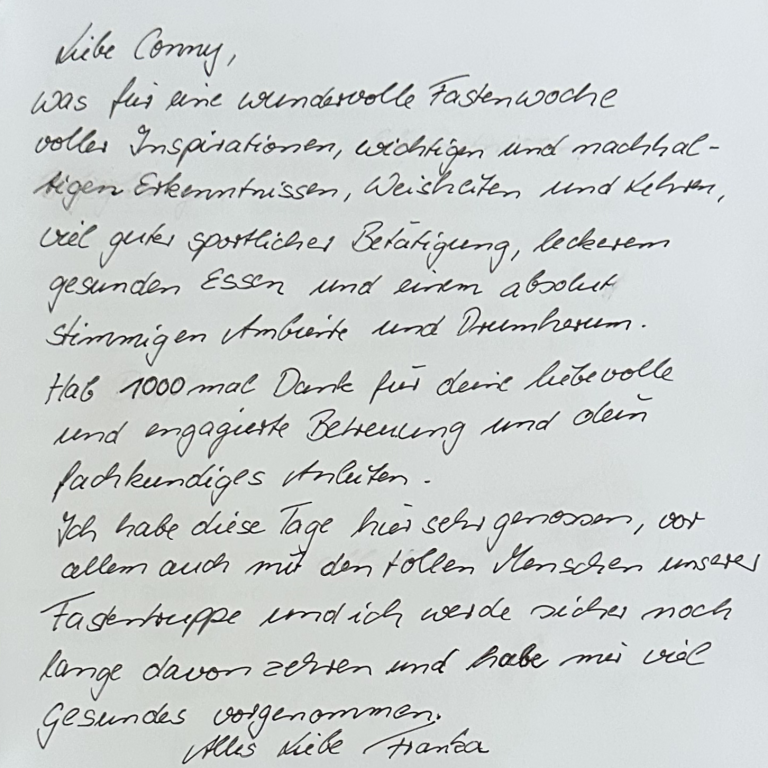 Liebe Conny,
was für eine wundervolle Fastenwoche
voller Inspirationen, wichtigen und nachhal-
tigen Erkenntnissen, Weisheiten und Lehren,
viel guter sportlicher Betätigung, leckerem
gesunden Essen und einem absolut
stimmigen Ambiente und Drumherum.
Hab 1000 mal Dank für deine liebevolle
und engagierte Betreuung und dein
fachkundiges Anleiten.
Ich habe diese Tage hier sehr genossen, vor
allem auch mit den tollen Menschen unserer
Fastentruppe und ich werde sicher noch
lange davon zehren und habe mir viel
Gesundes vorgenommen.
Alles Liebe Franka